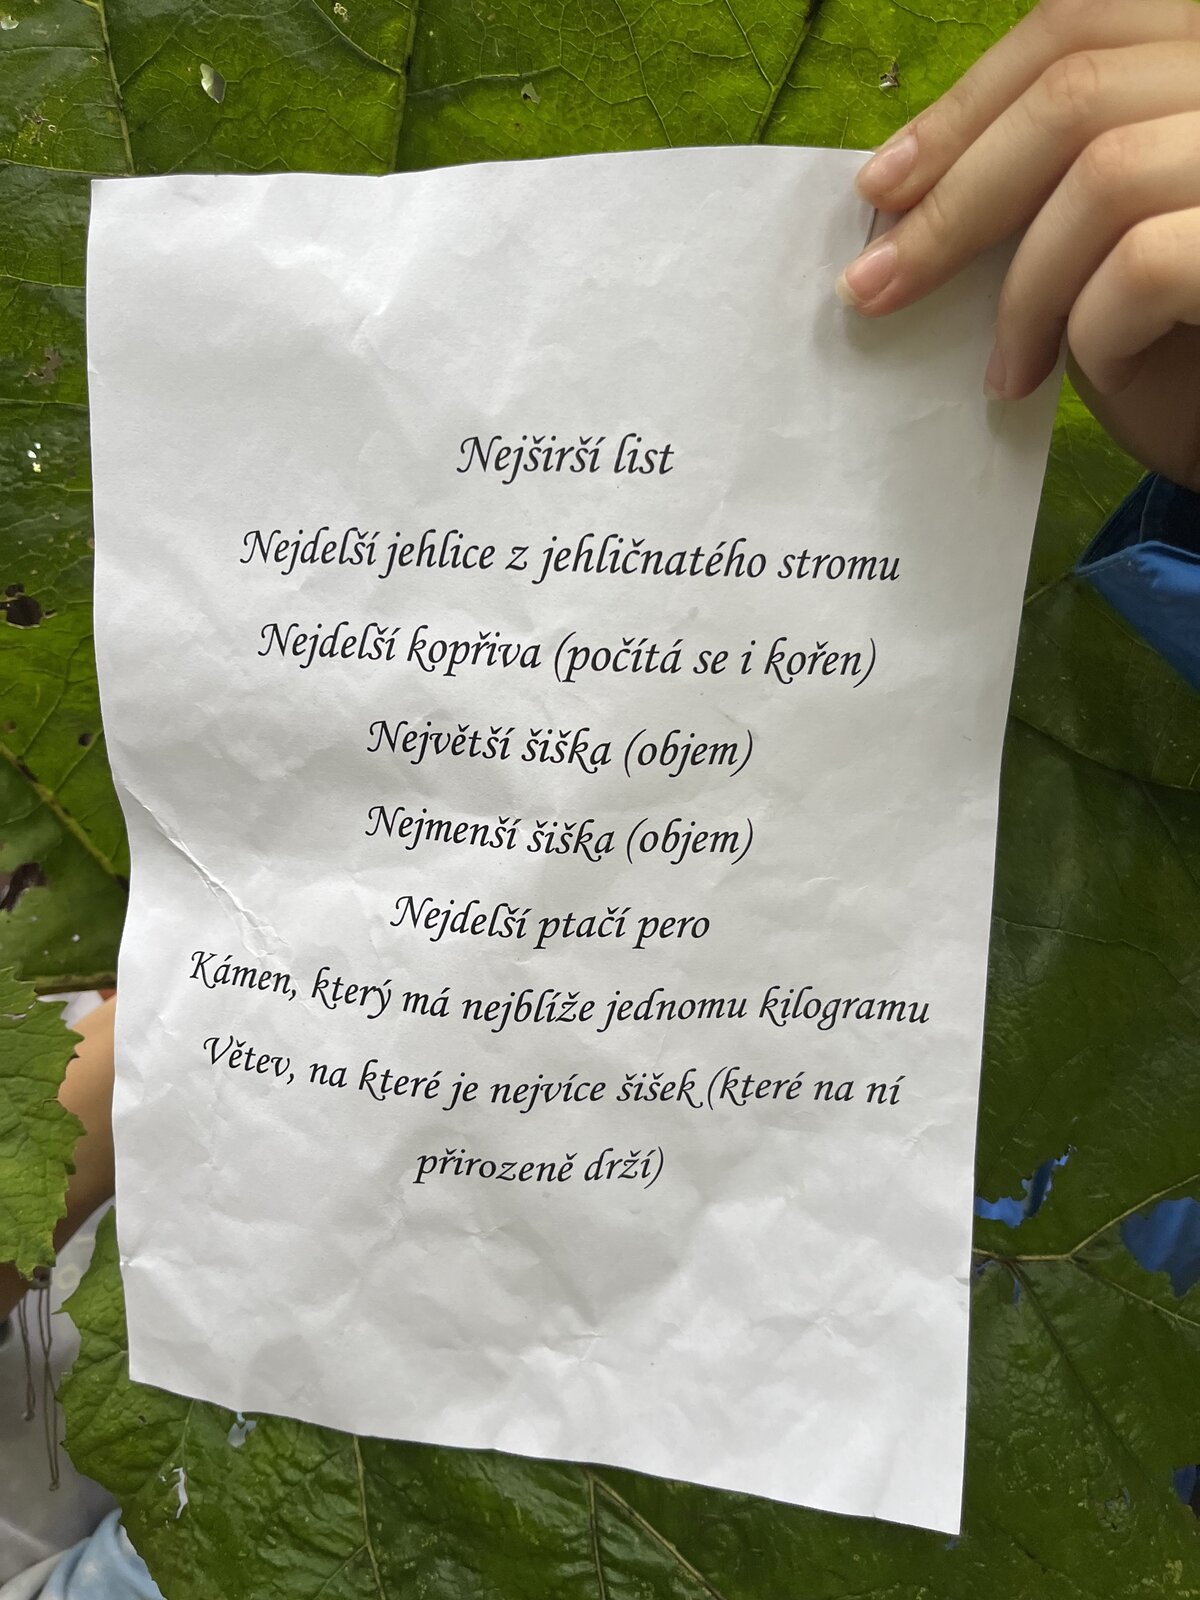 Nejširší list
Nejdelší jehlice z jehličnatého stromu
Nejdelší kopřiva (počítá se i kořen)
Největší šiška (objem)
Nejmenší šiška (objem)
Nejdelší ptačí pero
Kámen, který má nejblíže jednomu kilogramu
Větev, na které je nejvíce šišek (které na ní
přirozeně drží)